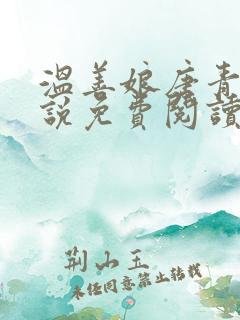 溫善娘唐青
說免費閱讀
荆山玉
未经同意禁止转载